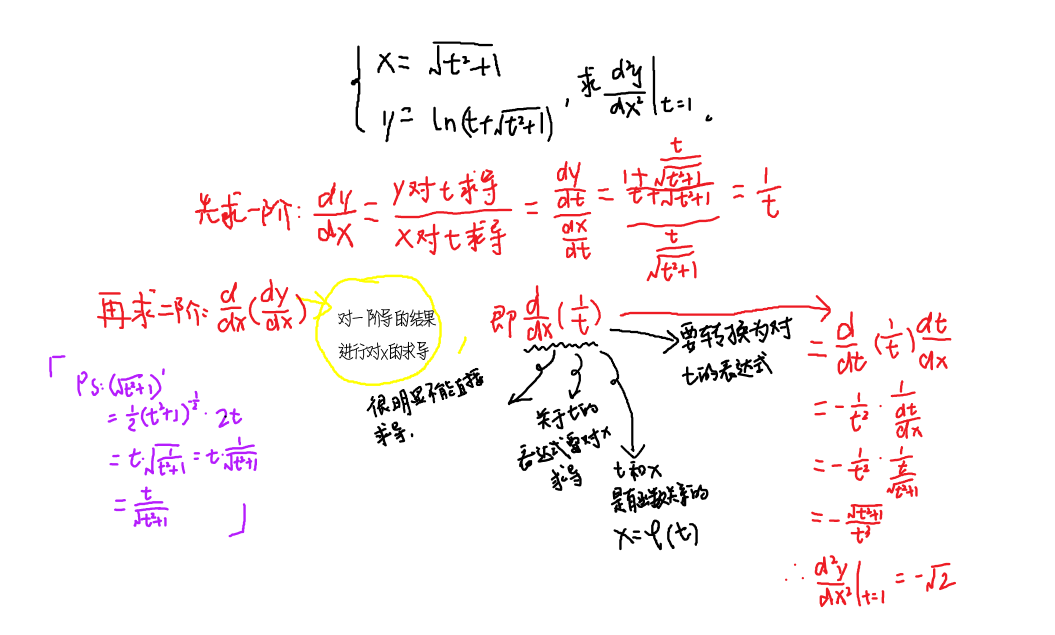 { x = √(t²+1)
y = ln(t+√(t²+1)) , 求 d²y/dx² |t=1 .
先求一阶: dy/dx = y对t求导/x对t求导 = (dy/dt)/(dx/dt) = ((1+t/√(t²+1))/(t+√(t²+1)))/(t/√(t²+1)) = 1/t
再求二阶: d/dx(dy/dx)
对一阶导的结果
进行对x的求导
,
即 d/dx(1/t)
很明显不能直接
求导.
关于t的
表达式要对x
求导
t和x
是有函数关系的
x=φ(t)
要转换为对
t的表达式
= d/dt (1/t) dt/dx
= -1/t² · 1/(dt/dx)
= -1/t² · 1/(t/√(t²+1))
= -√(t²+1)/t³
∴ d²y/dx² |t=1 = -√2
「 PS: (√(t²+1))'
= 1/2(t²+1)^(-1/2) · 2t
= t·√(1/(t²+1)) = t·1/√(t²+1)
= t/√(t²+1) 」